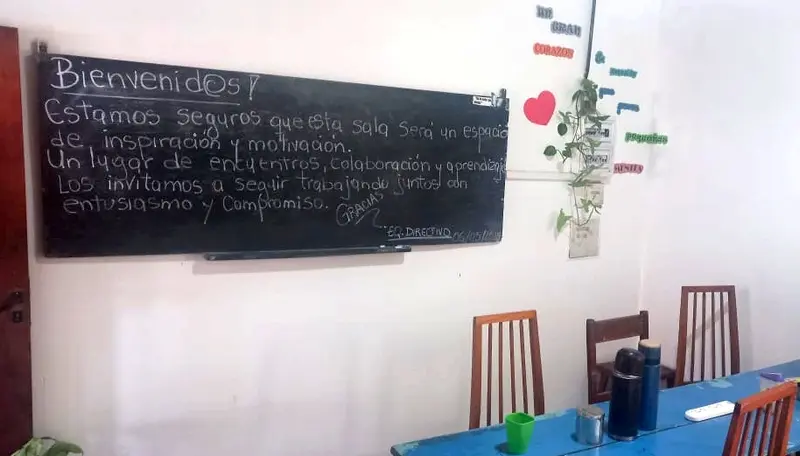 Bienvenid@s!
Estamos seguros que esta sala será un espacio
de inspiración y motivación.
Un lugar de encuentros, colaboración y aprendizaje
Los invitamos a seguir trabajando juntos con
entusiasmo y compromiso.
GRACIAS
EQ. DIRECTIVO
UN
GRAN
CORAZON
&
que
pequeñas